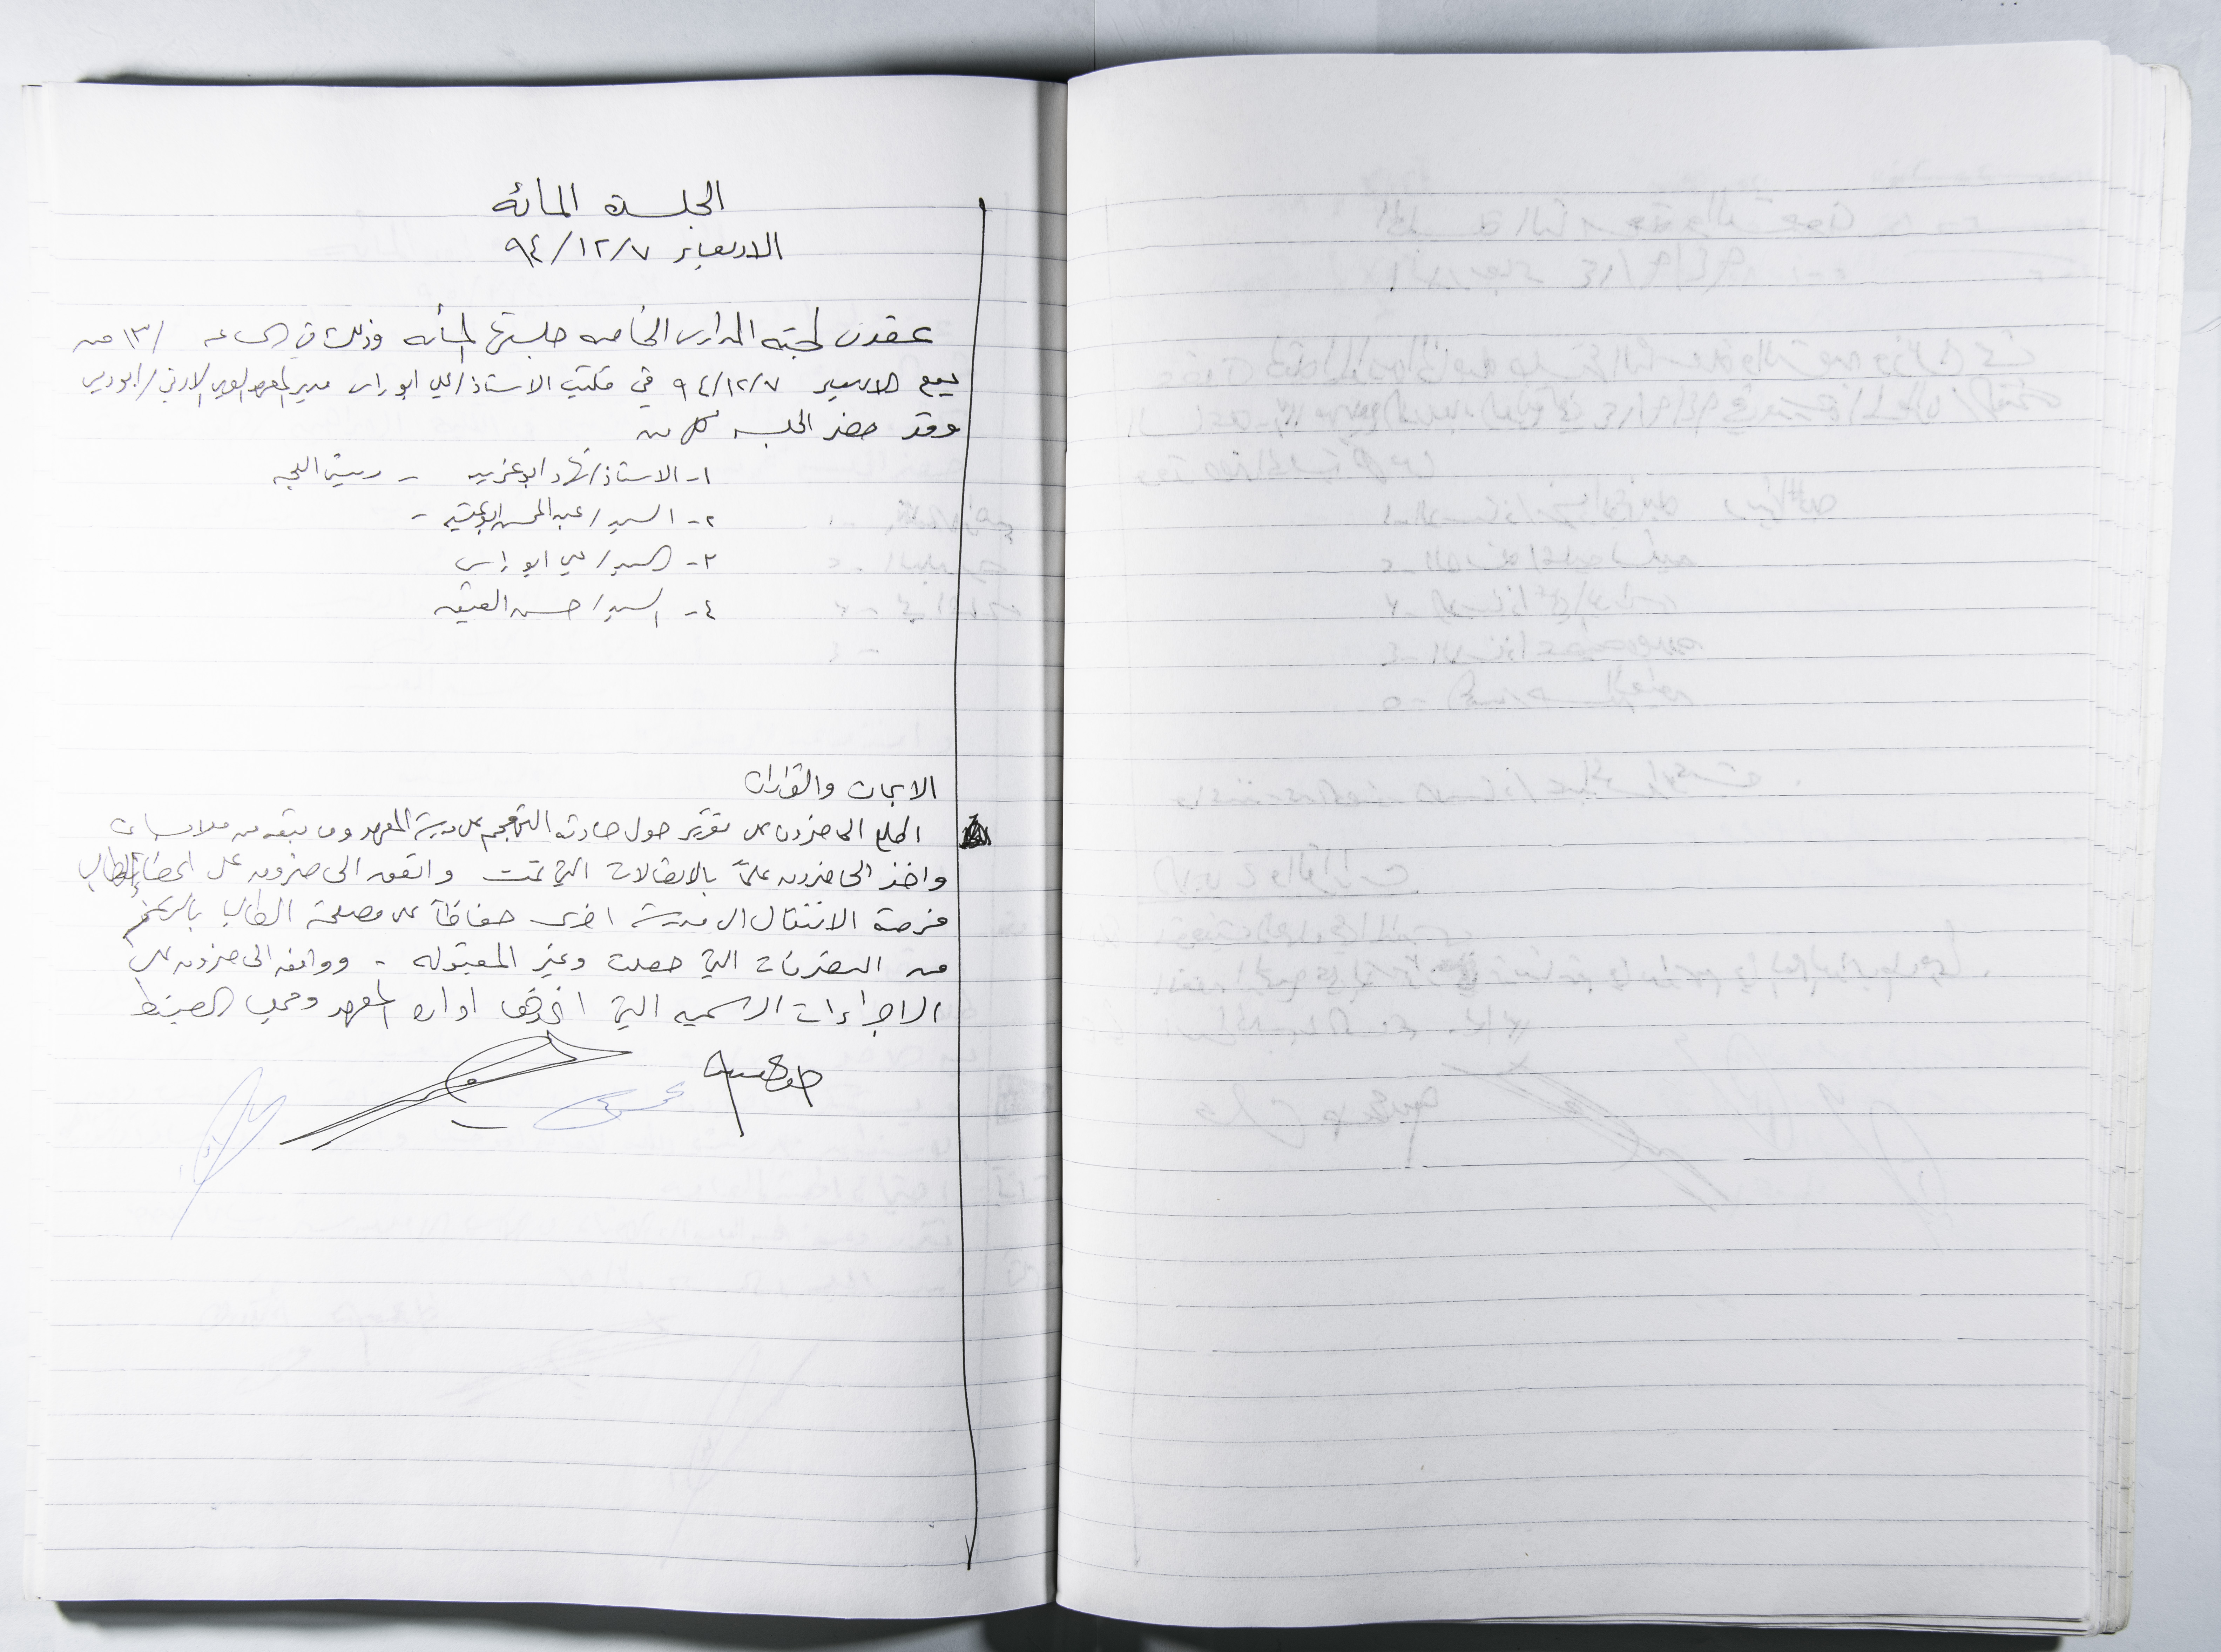 الجلسة المائه
الاربعاء ٩٤/١٢/٧
عقدت لجنة المدارس الخاصه جلستها المأئه وذلك في الساعه /١٣ من
يوم الاربعاء ٩٤/١٢/٧ في مكتب الاستاذ/علي ابو راس مدير المعهد العربي الاردني/ابوديس
وقد حضر الجلسه كل من
١- الاستاذ/نهاد ابو غربيه - رئيس اللجنه
٢- السيد/عبد المحسن ابو -
٣- السيد/علي ابو راس
٤- السيد/حسن القيق
الابحاث والقرارات
اطلع الحاضرون على تقرير حول حادثه التهجم على المعهد وما تبعه من ملابسات
واخذ الحاضرون علماً بالاتصالات التي تمت واتفق الحاضرون على اعطاء الطالب
فرصة الانتقال الى مدرسة اخرى حفاظاً على مصلحة الطالب بالرغم
من التصرفات التي حصلت وغير المقبوله - ووافق الحاضرون على
الاجراءات الرسميه التي اتخذتها اداره المعهد ومجلس الضبط